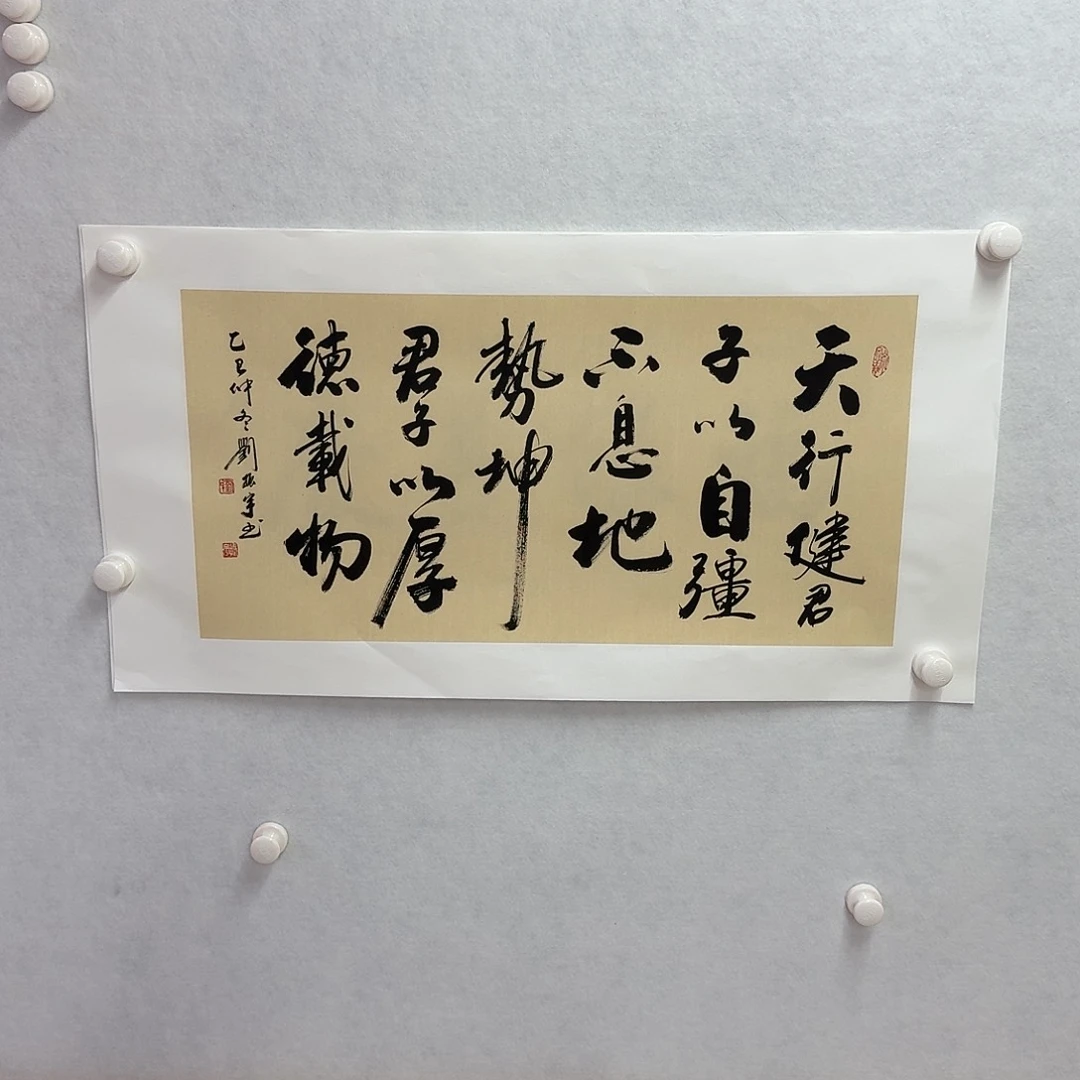 天行健君
子以自彊
不息地
勢坤
君子以厚
德載物
乙丑仲冬劉振宇书